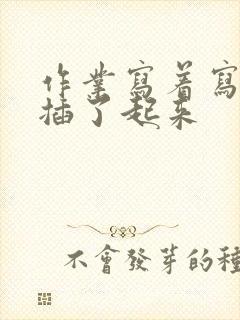 作業寫着寫
插了起来
不會發芽的種